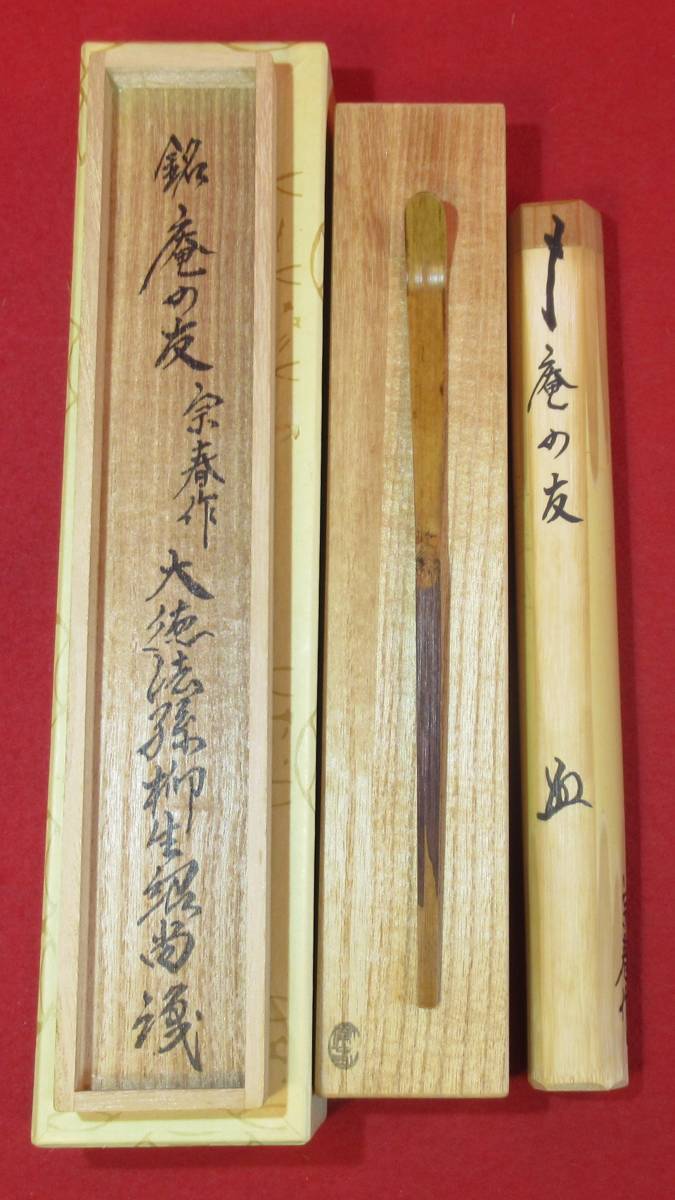 銘 庵の友 宗春作 大徳法孫柳生紹尚識
庵の友